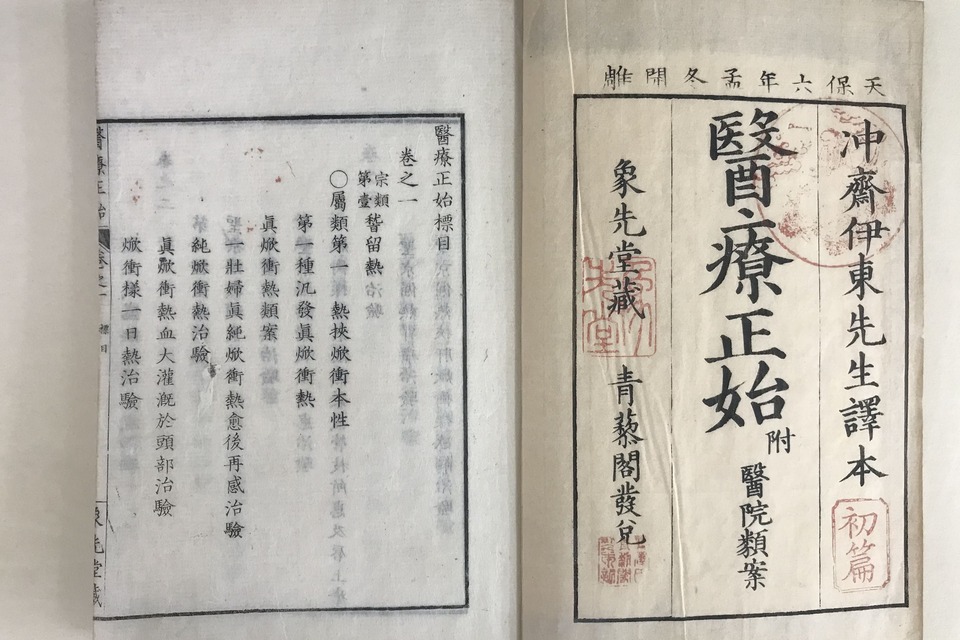 天保六年孟冬開雕
冲齋伊東先生譯本
初篇
醫療正始
附
醫院類案
象先堂藏
青藜閣發兌
醫療正始標目
卷之一
宗類
第壹
稽留熱
〇屬類第一 熱挾焮衝本性
第一種汎發眞焮衝熱
眞焮衝熱類案
一壯婦眞純焮衝熱愈後再感治驗
純焮衝熱治驗
眞焮衝熱血大灌漑於頭部治驗
焮衝樣一日熱治驗
醫療正始
卷之一
標目
象先堂藏